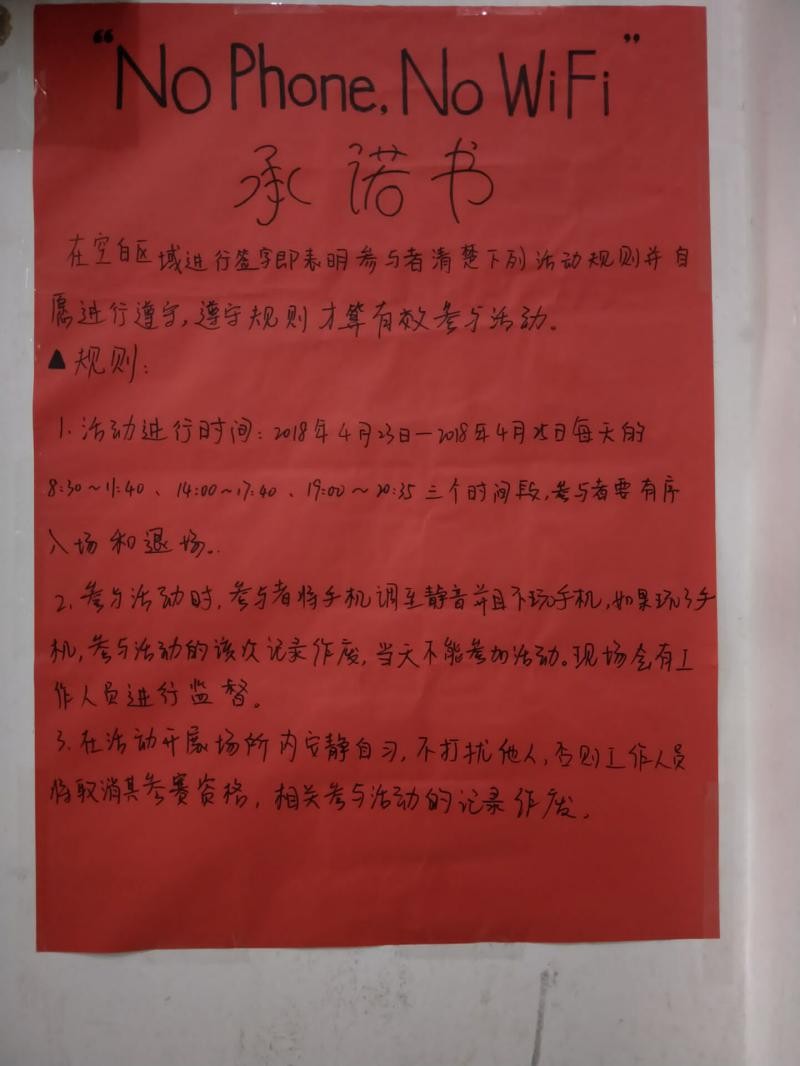 “No Phone, No WiFi”
承诺书
在空白区域进行签字即表明参与者清楚下列活动规则并自
愿进行遵守,遵守规则才算有效参与活动。
▲规则:
1. 活动进行时间:2018年4月23日—2018年4月25日每天的
8:30~11:40、14:00~17:40、19:00~20:35三个时间段,参与者要有序
入场和退场。
2. 参与活动时,参与者将手机调至静音并且不玩手机,如果玩了手
机,参与活动的该次记录作废,当天不能参加活动。现场会有工
作人员进行监督。
3. 在活动开展场所内安静自习,不打扰他人,否则工作人员
将取消其参赛资格,相关参与活动的记录作废。